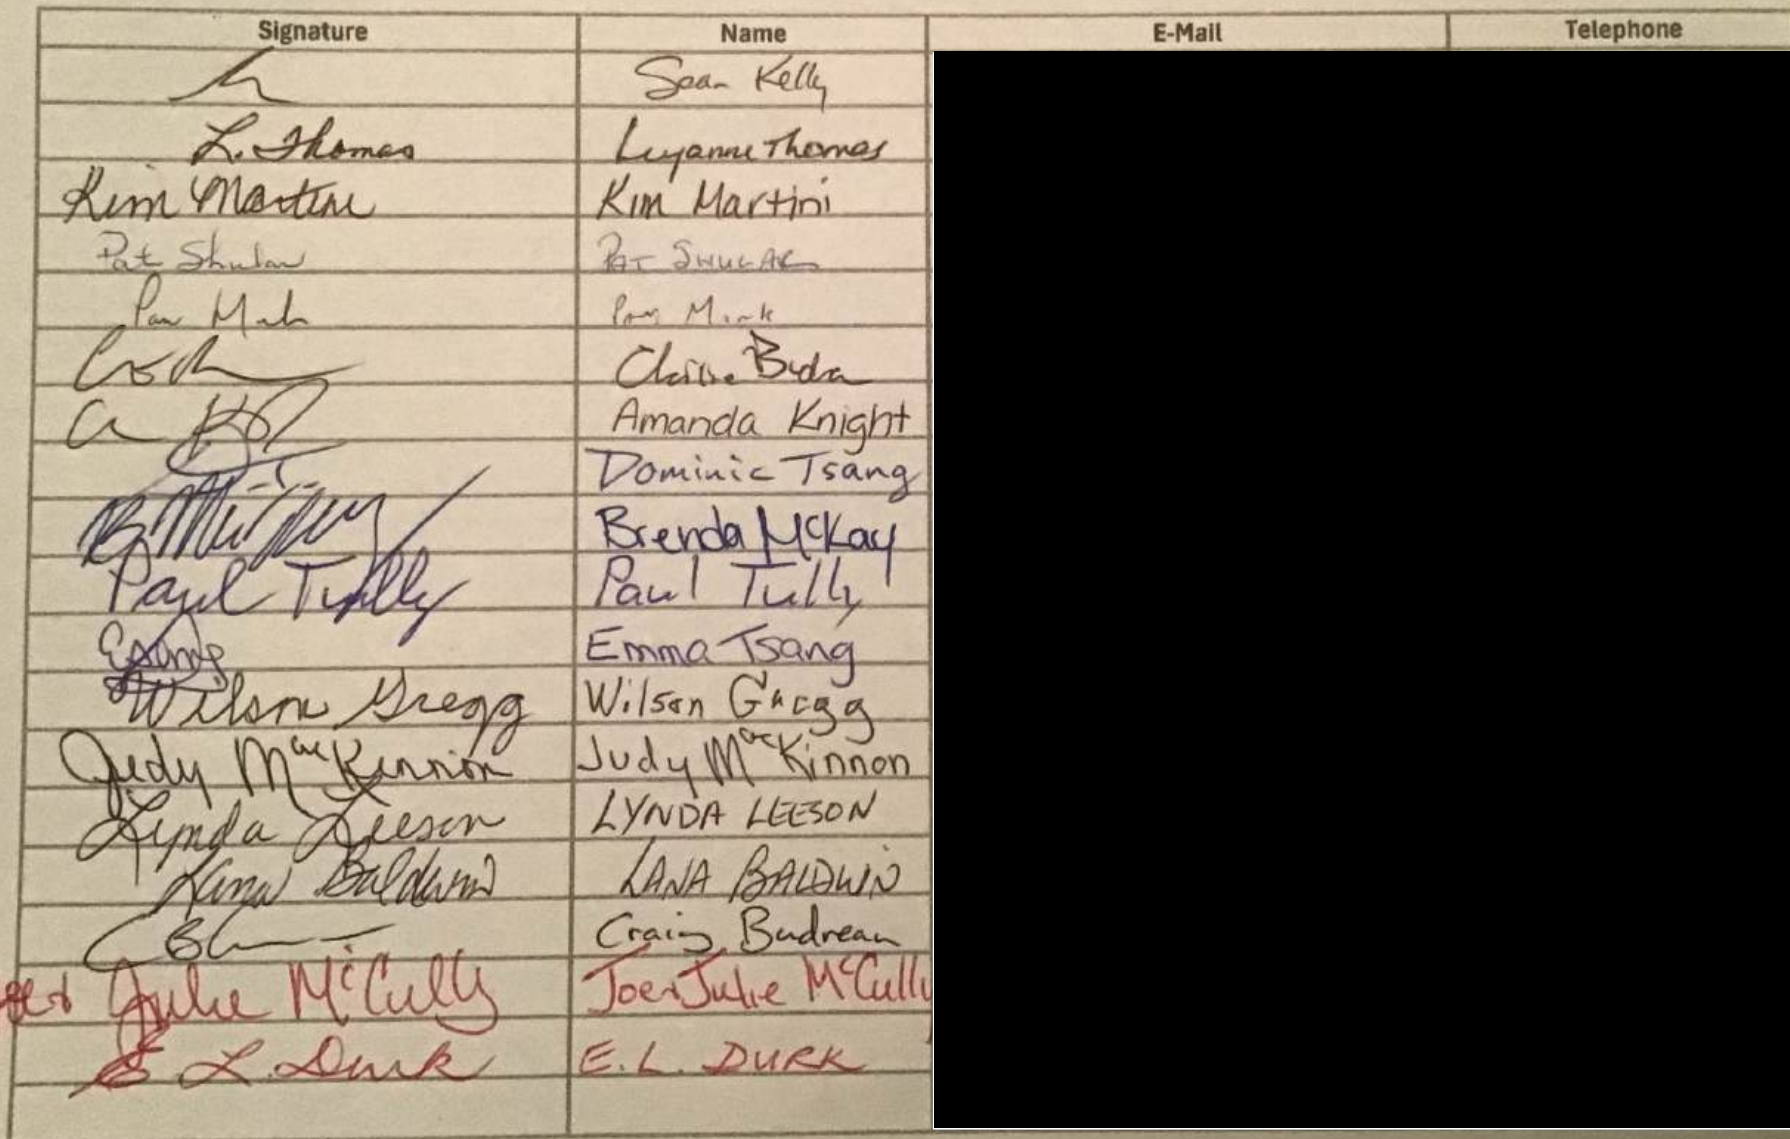 Signature Name E-Mail Telephone
Sean Kelly
L. Thomas Luyanne Thomas
Kim Martini Kim Martini
Pat Shular PAT SHULAR
Pam Mink Pam Mink
Amanda Knight
Dominic Tsang
Brenda McKay
Paul Tully Paul Tully
Emma Tsang
Wilson Gregg Wilson Gregg
Judy MacKinnon Judy MacKinnon
Lynda Leeson LYNDA LEESON
Lana Baldwin LANA BALDWIN
Craig Budreau
Julie McCully Joe & Julie McCully
E. L. Durk E.L. DURK